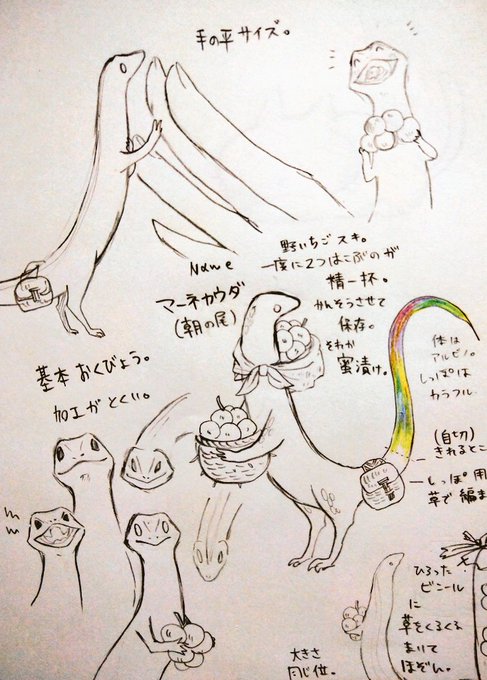 手の平サイズ。
Name
マーネカウダ
(朝の尾)
野いちごスキ。
一度に2つはこぶのが
精一杯。
かんそうさせて
保存。
それか
蜜漬け。
体は
アルビノ。
しっぽは
カラフル
基本おくびょう。
加工がとくい。
(自切)
きれるとこ
しっぽ用
草で編ま
ひろった
ビニール
に
草をくるくる
まいて
ほぞん。
大きさ
同じ位。